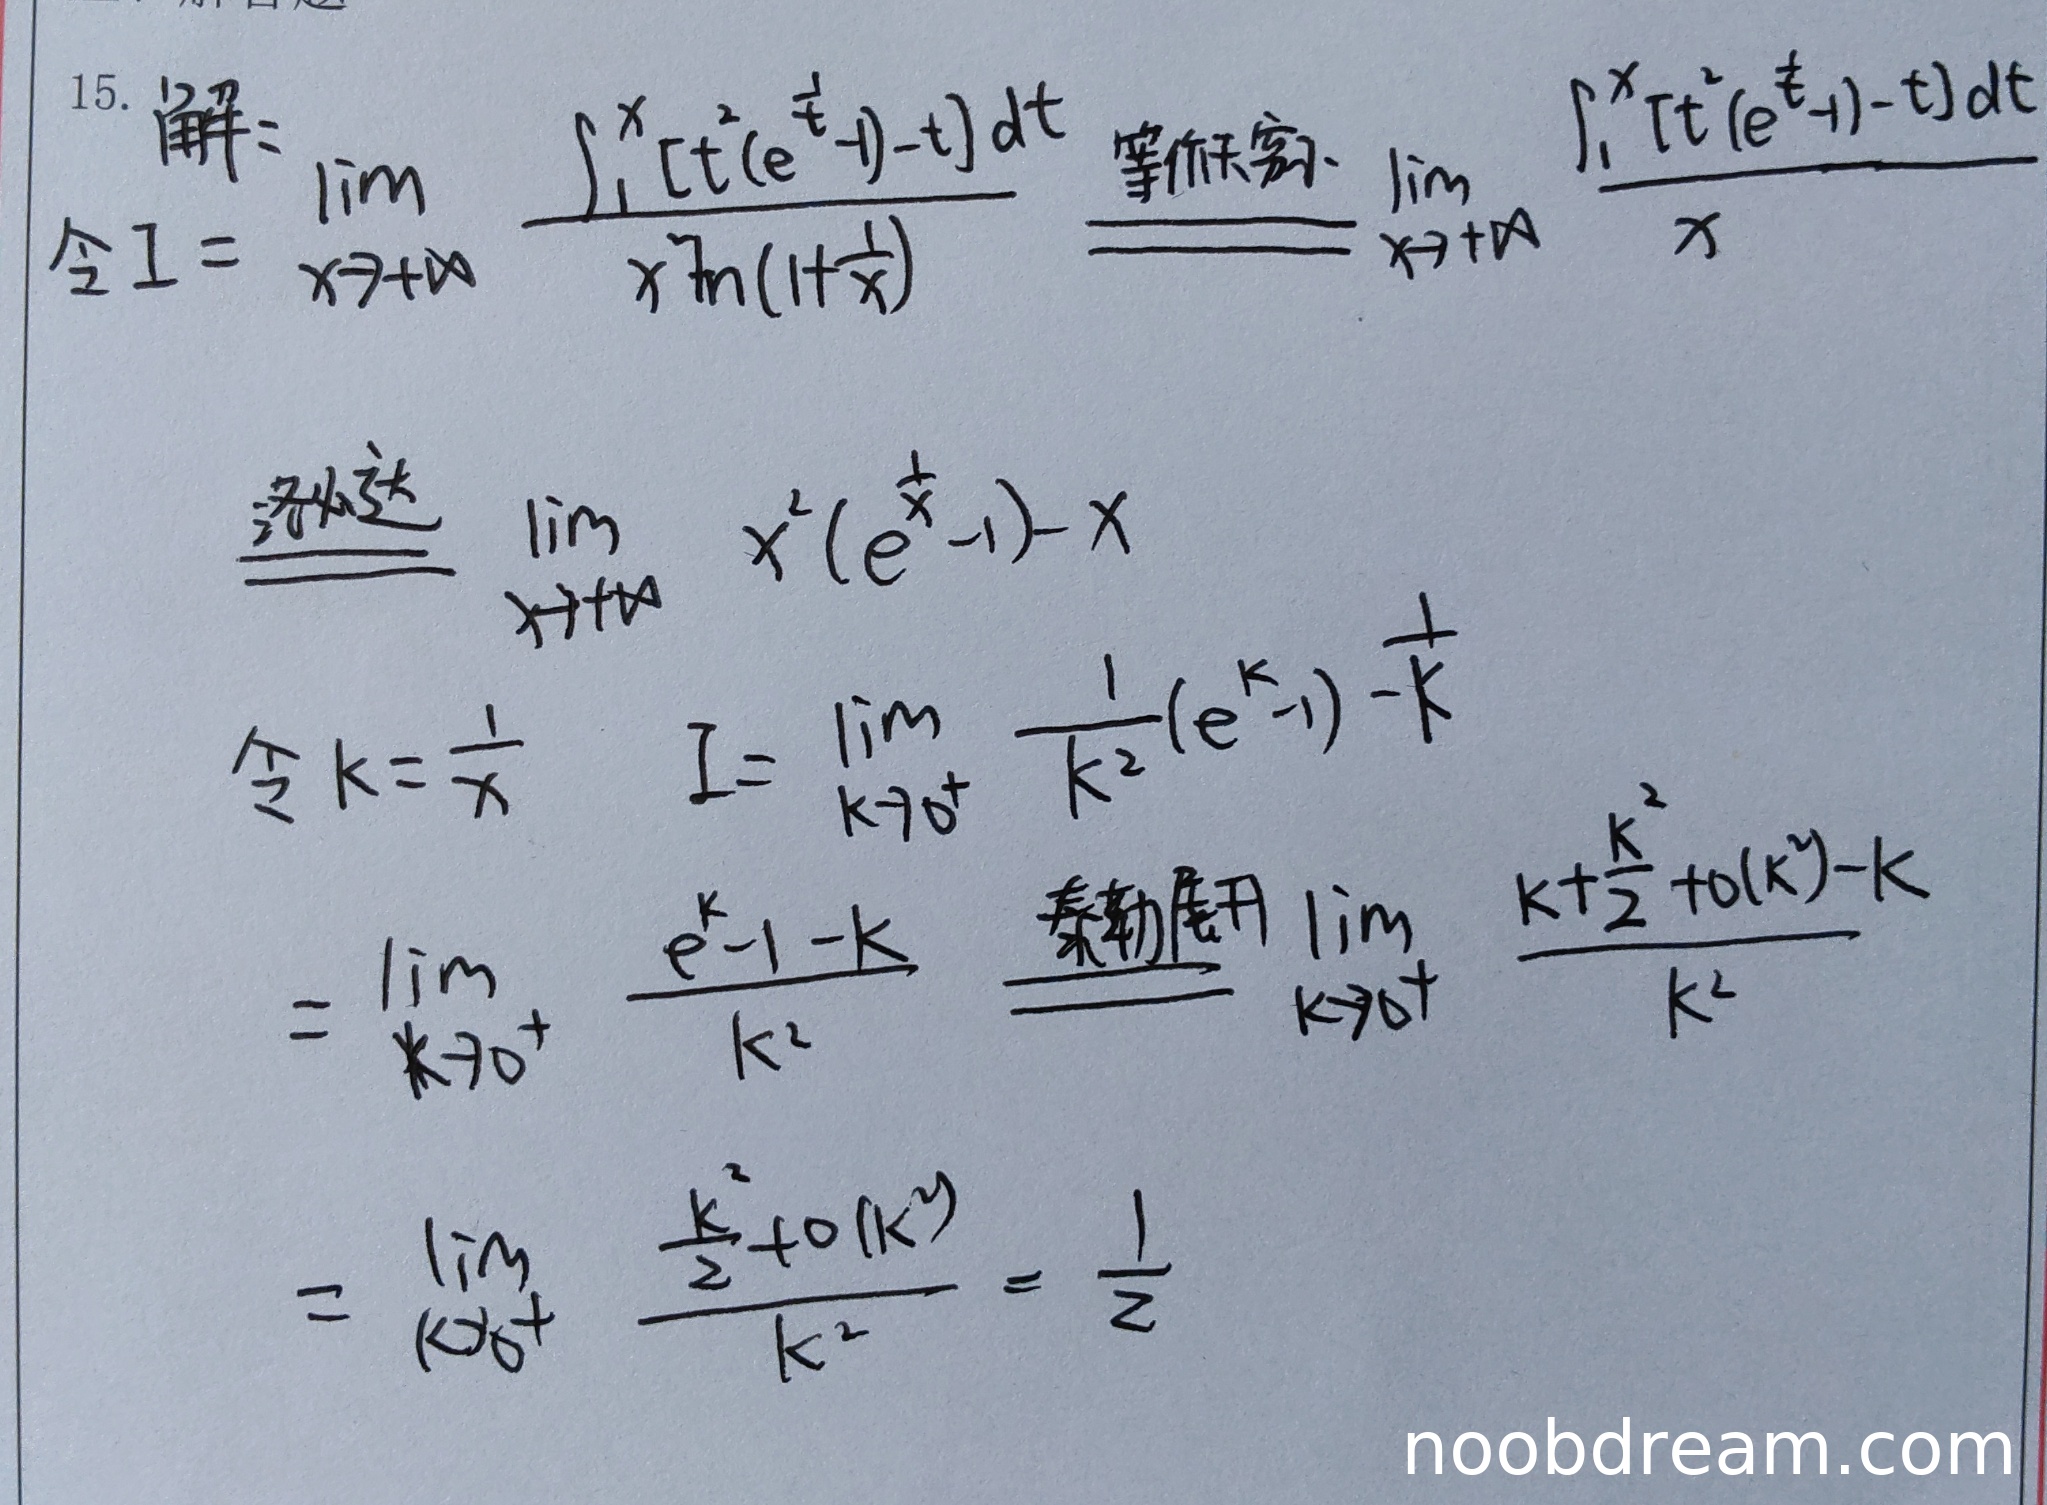 15. 解:
令 I = lim x→+∞ ∫₁ˣ [t²(e^(1/t) -1) - t] dt / x² ln(1+1/x) 等价无穷小 lim x→+∞ ∫₁ˣ [t²(e^(1/t) -1) - t] dt / x
洛必达 lim x→+∞ x²(e^(1/x) -1) - x
令 k = 1/x I = lim k→0⁺ 1/k² (e^k -1) - 1/k
= lim k→0⁺ (e^k -1 -k) / k² 泰勒展开 lim k→0⁺ (k + k²/2 + o(k²) - k) / k²
= lim k→0⁺ (k²/2 + o(k²)) / k² = 1/2
noobdream.com